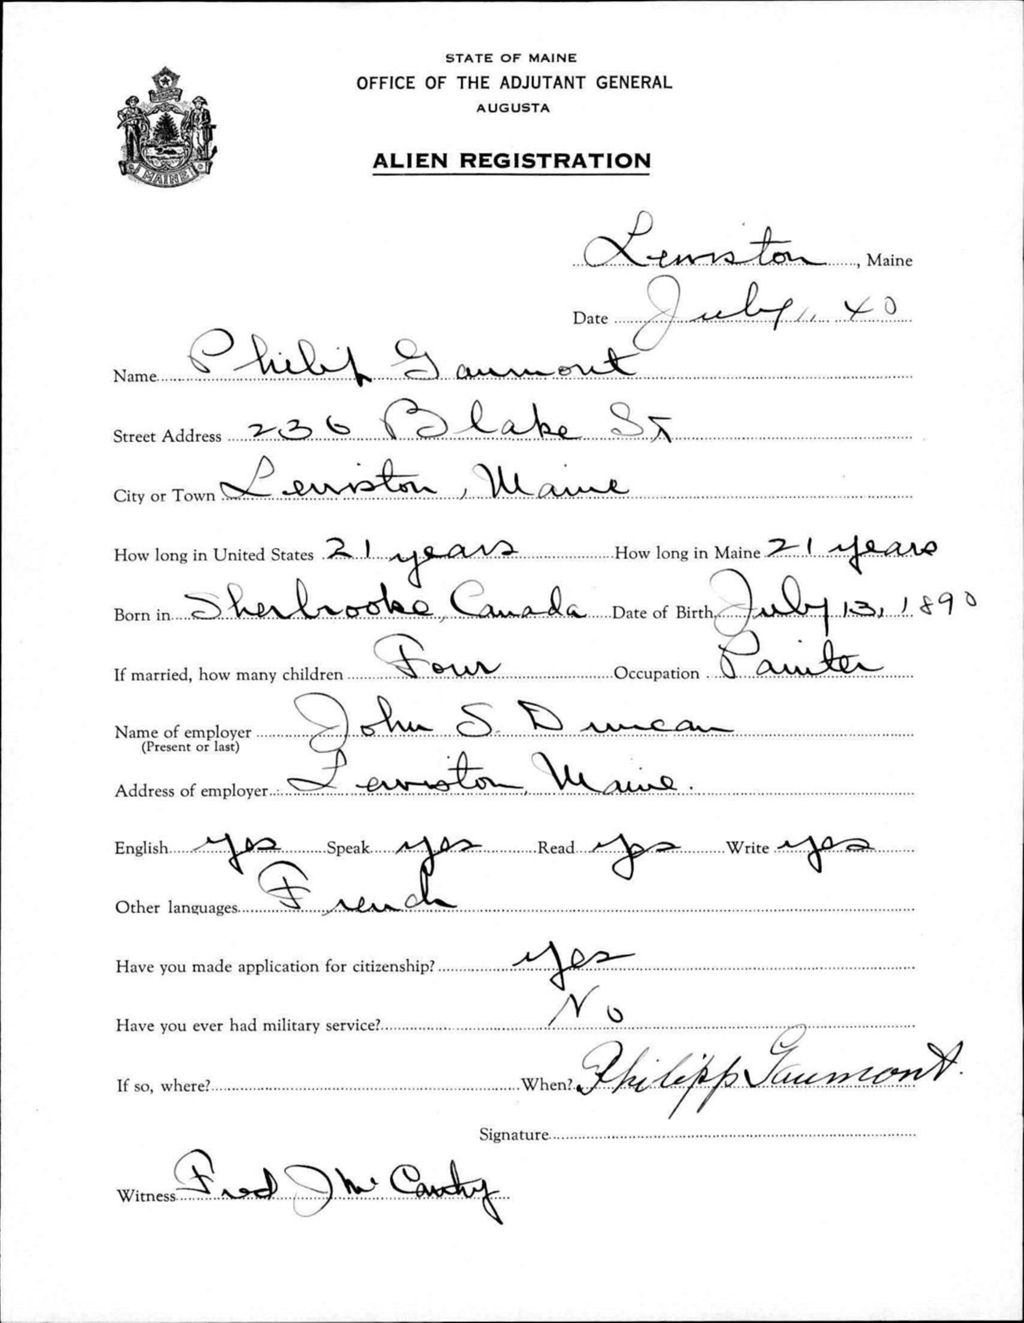 STATE OF MAINE
OFFICE OF THE ADJUTANT GENERAL
AUGUSTA
ALIEN REGISTRATION
MAINE
Lewiston, Maine
Date July 1, 40
Name Philip Gaumont
Street Address 236 Blake St
City or Town Lewiston, Maine
How long in United States 21 years How long in Maine 21 years
Born in Sherbrooke, Canada Date of Birth July 13, 1890
If married, how many children Four Occupation Painter
Name of employer John S. Duncan
(Present or last)
Address of employer Lewiston, Maine.
English yes Speak yes Read yes Write yes
Other languages French
Have you made application for citizenship? yes
Have you ever had military service? No
If so, where? When?
Signature Philipp Gaumont.
Witness Fred J McCarthy